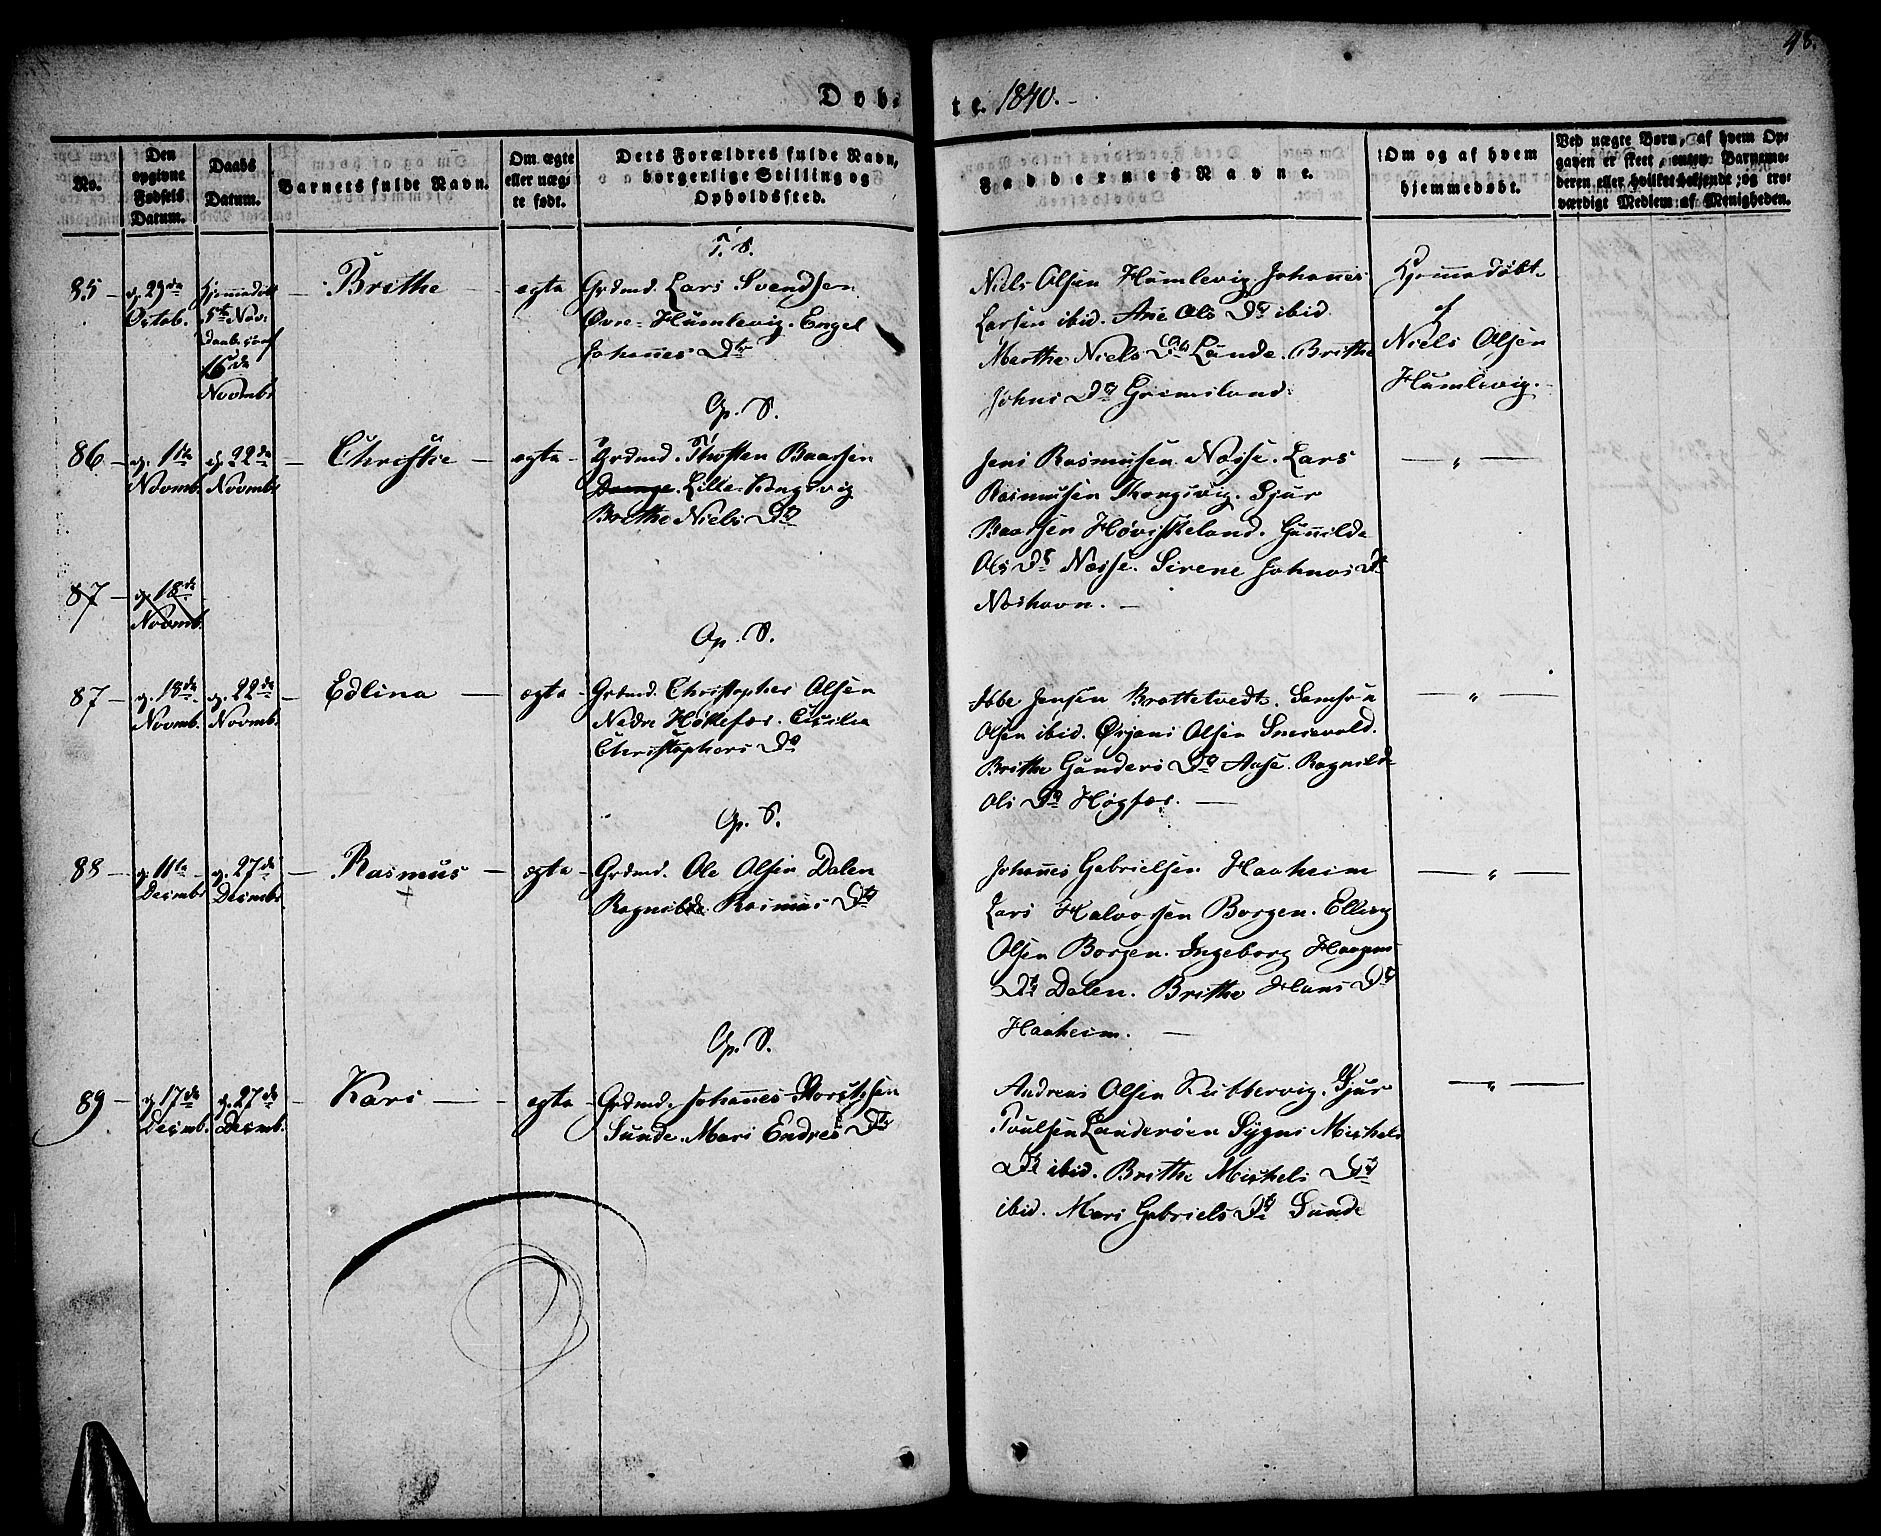 48.
Døb-
te. 1840.
No.
Den opgivne Fødsels Datum.
Daabs Datum.
Barnets fulde Navn.
Om ægte eller uægte født.
Dets Forældres fulde Navn, borgerlige Stilling og Opholdssted.
Faddernes Navne.
Om og af hvem hjemmedøbt.
Ved uægte Børn, af hvem Opgaven er skeet, enten Barnemoderen eller hvilket boesiddende og troværdigt Medlem af Menigheden.
T. S.
85 - d. 29de Octob.
Hjemmedøbt 5te Nov: Daabs 16de Novmb.
Brithe
ægte
Grdmd. Lars Svendsen
Øvre-Humlevig. Engel
Johannes Dtr
Niels Olsen Humlevig Johannes
Larsen ibid. Ane Ols Dtr ibid.
Marthe Niels Dtr Lunde. Brithe
Johns Dtr Grimsland.
Hjemmedøbt
af
Niels Olsen
Humlevig.
Op. S.
86 - d. 1te Novmb.
d. 22de Novmb.
Christie
ægte
Grdmd. Thosten Baarsen
Lille-Kongsvig
Brithe Niels Dtr
Jens Rasmusen Næsse. Lars
Rasmusen Kongsvig. Sjur
Baarsen Høviskeland. Gunnilde
Ols Dtr Næsse. Sirene Johnas Dtr
Næshavn. -
- " -
87 - d. 18de
Novmb.
Op. S.
87 - d. 18de Novmb.
d. 22de Novmb.
Edlina
ægte
Grdmd. Christopher Olsen
Nedre Høllefos. Cicilia
Christophers Dtr
Ibbe Jensen Brattetvedt. Samson
Olsen ibid. Ørjans Olsen
Brithe Gunders Dtr Aase. Ragnilde
Ols Dtr Høgfos. -
- " -
Op. S.
88 - d. 11te Desmb.
d. 27de Desmb.
Rasmus
+
ægte
Grdmd. Ole Olsen Dalen
Ragnilde Rasmus Dtr
Johannes Gabrielsen Haaheim
Lars Halvorsen Borgen. Elling
Olsen Borgen. Ingeborg Haagens
Dtr Dalen. Brithe Hans Dtr
Haaheim. -
- " -
Op. S.
89 - d. 17de Desmb.
d. 27de Desmb.
Kari
ægte
Grdmd. Johannes
Sunde. Mari Endres Dtr
Andreas Olsen Sjur
Poulsen Landerøen Sygni Michels
Dtr ibid. Brithe Michels Dtr
ibid. Mari Gabriels Dtr Sunde
- " -